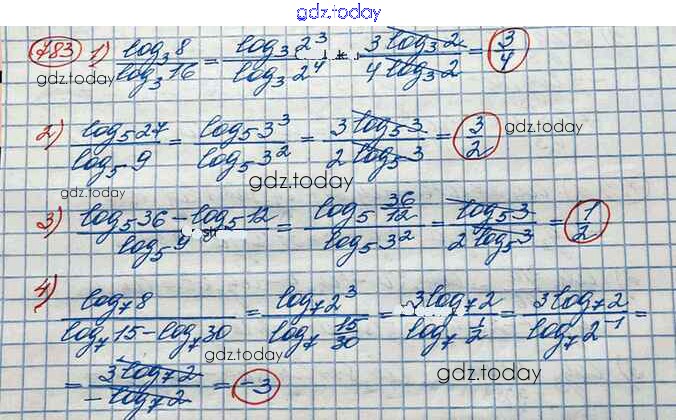 gdz.today
783 1) log₃8 / log₃16 = log₃2³ / log₃2⁴ = 3log₃2 / 4log₃2 = 3/4
gdz.today
2) log₅27 / log₅9 = log₅3³ / log₅3² = 3log₅3 / 2log₅3 = 3/2
gdz.today
gdz.today
gdz.today
3) log₅36 - log₅12 / log₅9 = log₅ 36/12 / log₅3² = log₅3 / 2log₅3 = 1/2
4) log₇8 / log₇15 - log₇30 = log₇2³ / log₇ 15/30 = 3log₇2 / log₇ 1/2 = 3log₇2 / log₇2⁻¹ =
gdz.today
= 3log₇2 / -log₇2 = -3
gdz.today